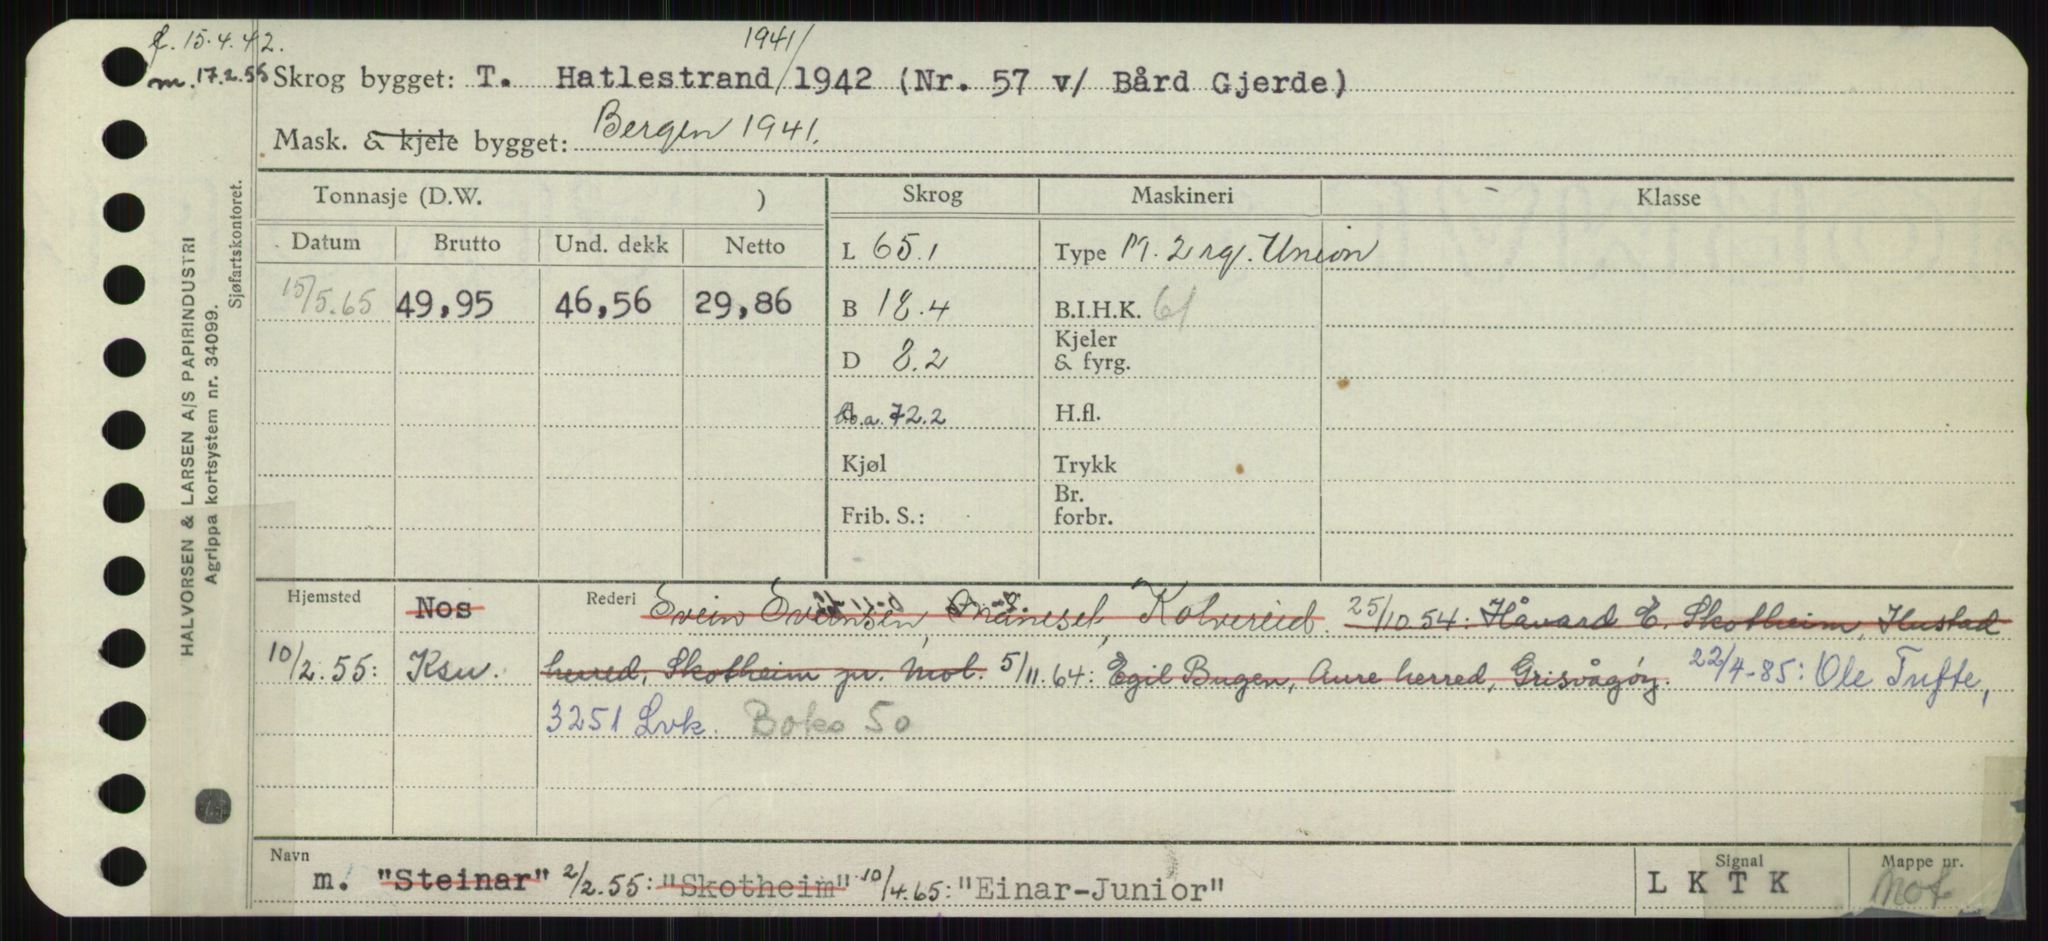 f. 15.4.42.
m. 17.2.55
1941/
Skrog bygget: T. Hatlestrand/1942 (Nr. 57 v/ Bård Gjerde)
Mask. & kjele bygget: Bergen 1941.
Tonnasje (D.W. ) Skrog Maskineri Klasse
Datum Brutto Und. dekk Netto L 65.1 Type M. 2 Union
15/5.65 49,95 46,56 29,86 B 18.4 B.I.H.K. 61
D 8.2 Kjeler & fyrg.
72.2 H.fl.
Kjøl Trykk
Frib. S.: Br. forbr.
Hjemsted Nos Rederi Svein Svensen, Kolvereid. 25/10 54: Håvard E. Skotheim, Hustad
10/2.55: Ksu. herred, Skotheim pr. Mol. 5/11.64: Egil Bugen, Aure herred, Grisvågøy. 22/4-85: Ole Tufte,
3251 Lvk. Boks 50
Navn Signal Mappe nr.
m. "Steinar" 2/2.55: "Skotheim" 10/4.65: "Einar-Junior" L K T K Mot
HALVORSEN & LARSEN A/S PAPIRINDUSTRI
Agrippa kortsystem nr. 34099.
Sjøfartskontoret.